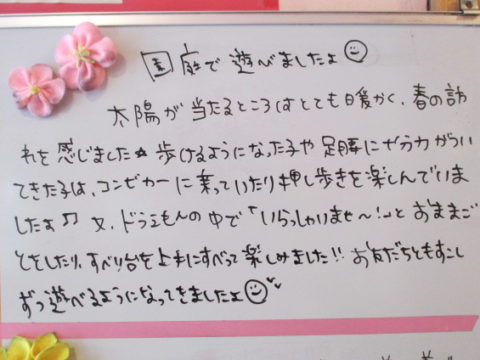 園庭で遊べましたよ
太陽が当たるところはとても暖かく、春の訪
れを感じました☆歩けるようになった子や足腰に十分力がつい
てきた子は、コンビカーに乗っていたり押し歩きを楽しんでいま
したよ♫ 又、ドラえもんの中で「いらっしゃいませ～!」とおままご
とをしたり、すべり台を上手にすべって楽しみました!! お友だちともすこし
ずつ遊べるようになってきましたよ